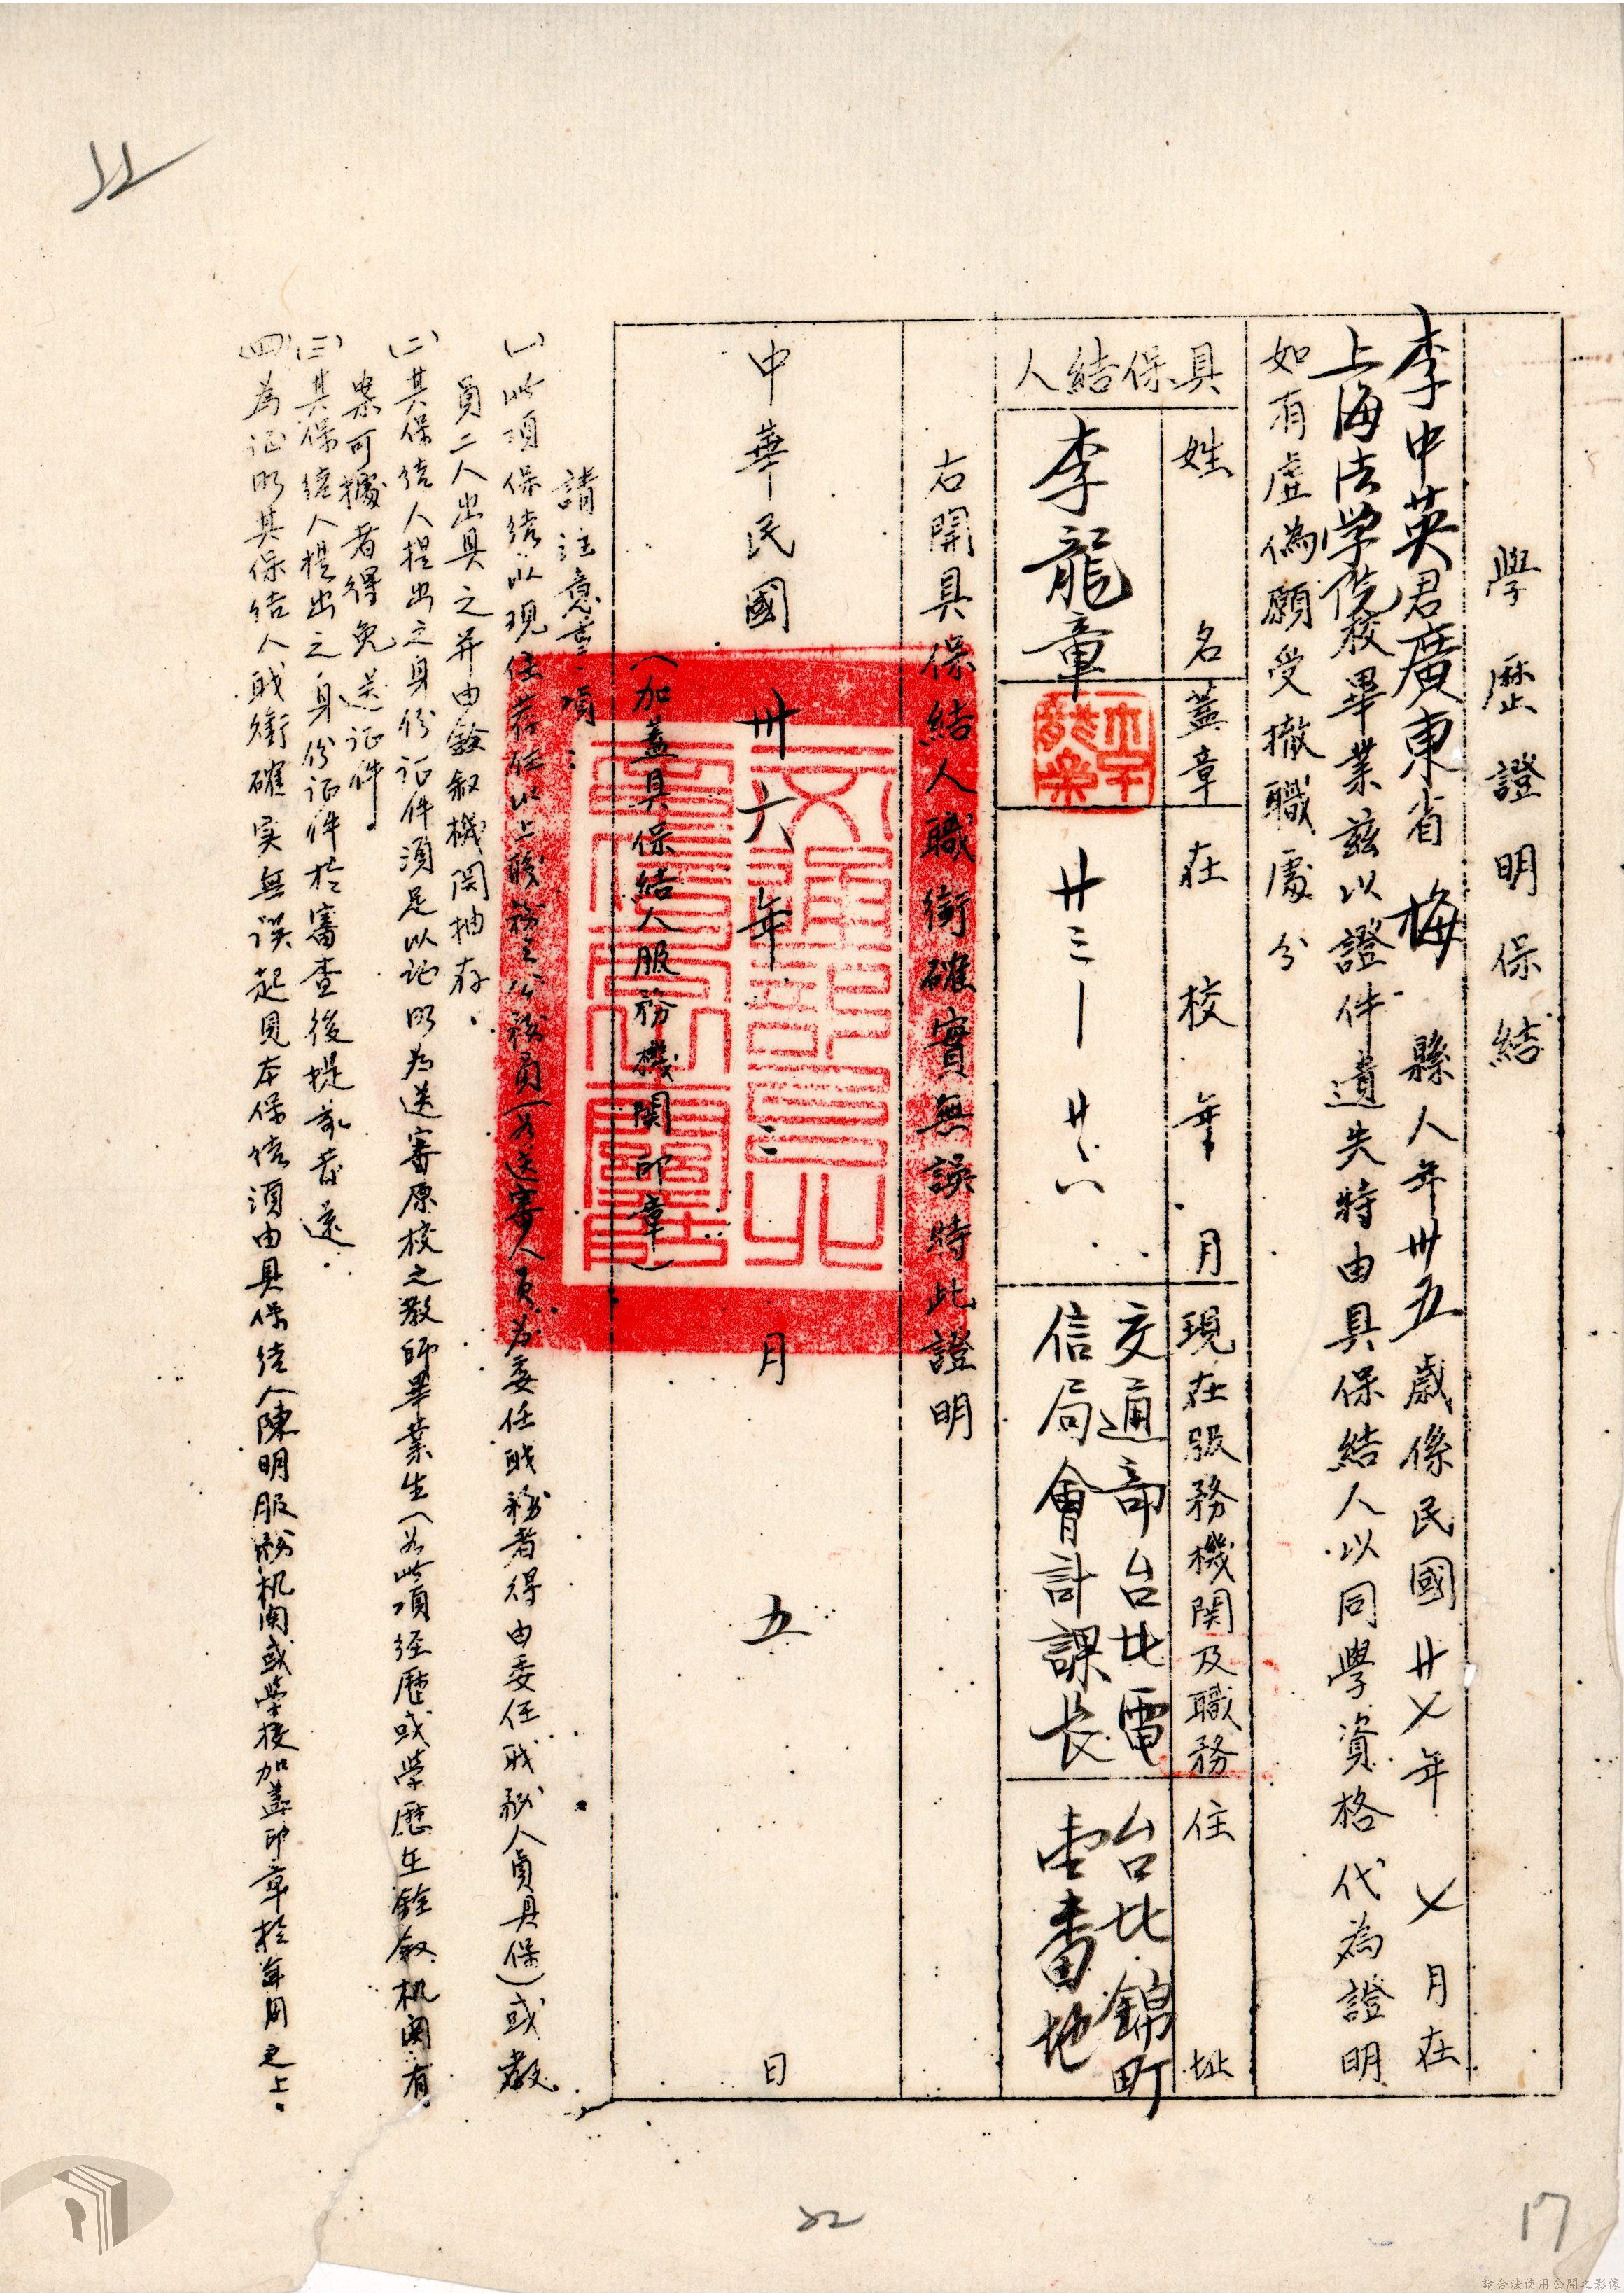 學歷證明保結
李中英君廣東省梅縣人年卅五歲係民國廿〤年〤月在
上海法学院校畢業茲以證件遺失特由具保結人以同學資格代為證明
如有虛偽願受撤職處分
具保結人
姓名
蓋章
在校年月
現在服務機関及職務
住址
李龍章
廿三—廿六
交通部台北電
信局會計課長
台北錦町
壹番地
右開具保結人職銜確實無誤特此證明
中華民國卅六年三月五日
(加蓋具保結人服務機関印章)
請注意事項:
(一)此項保結以現任荐任以上職務之公務員(如送審人員為委任职務者得由委任职務人員具保)或教
員二人出具之并由銓敘機関抽存、
(二)其保结人提出之身份证件須足以证明为送審原校之教師畢業生(如此項经歷或学歷在銓敘机関有
案可據者得免送证件。
(三)其保结人提出之身份证件於審查後提前發还.
(四)為证明其保结人职銜確实無误起見本保结須由具保结人陳明服務机関或学校加蓋印章於年月之上.
22
22
17
請合法使用公開之影像